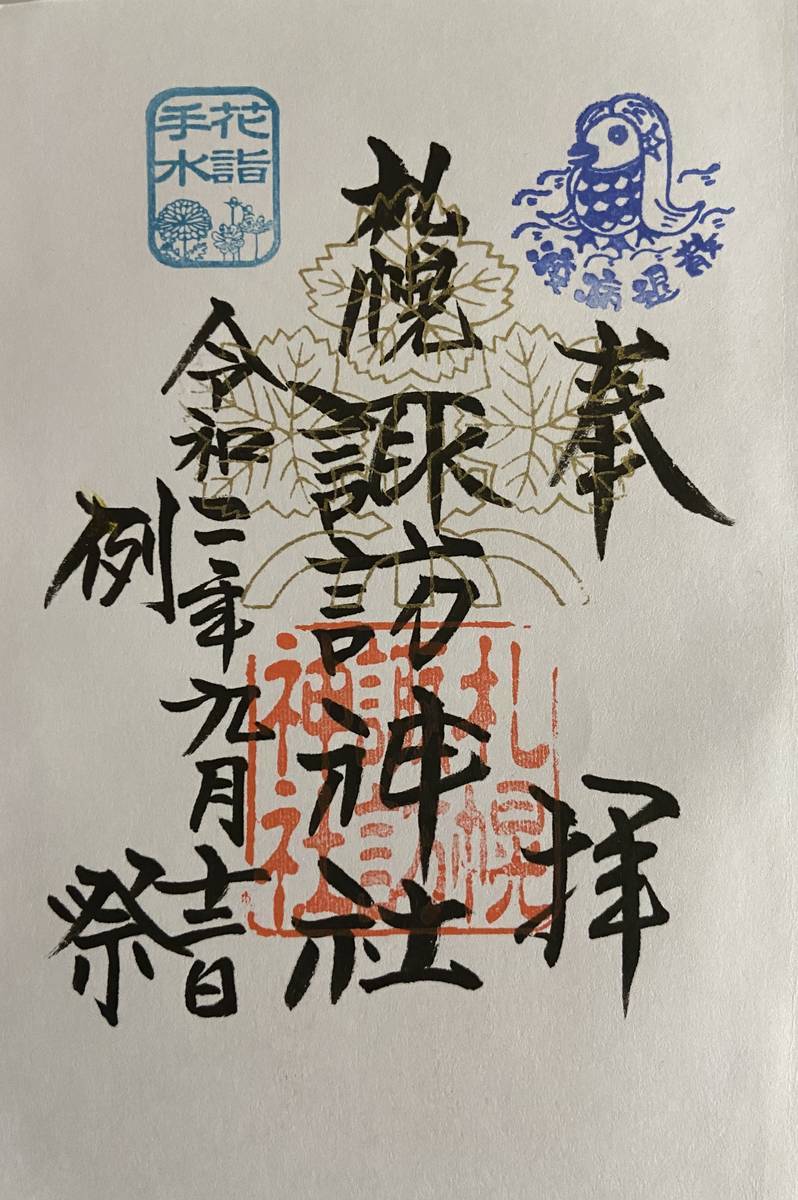 疫病退散
奉拝
札幌諏訪神社
札幌
諏訪
神社
花詣
手水
令和二年九月十二日
例祭